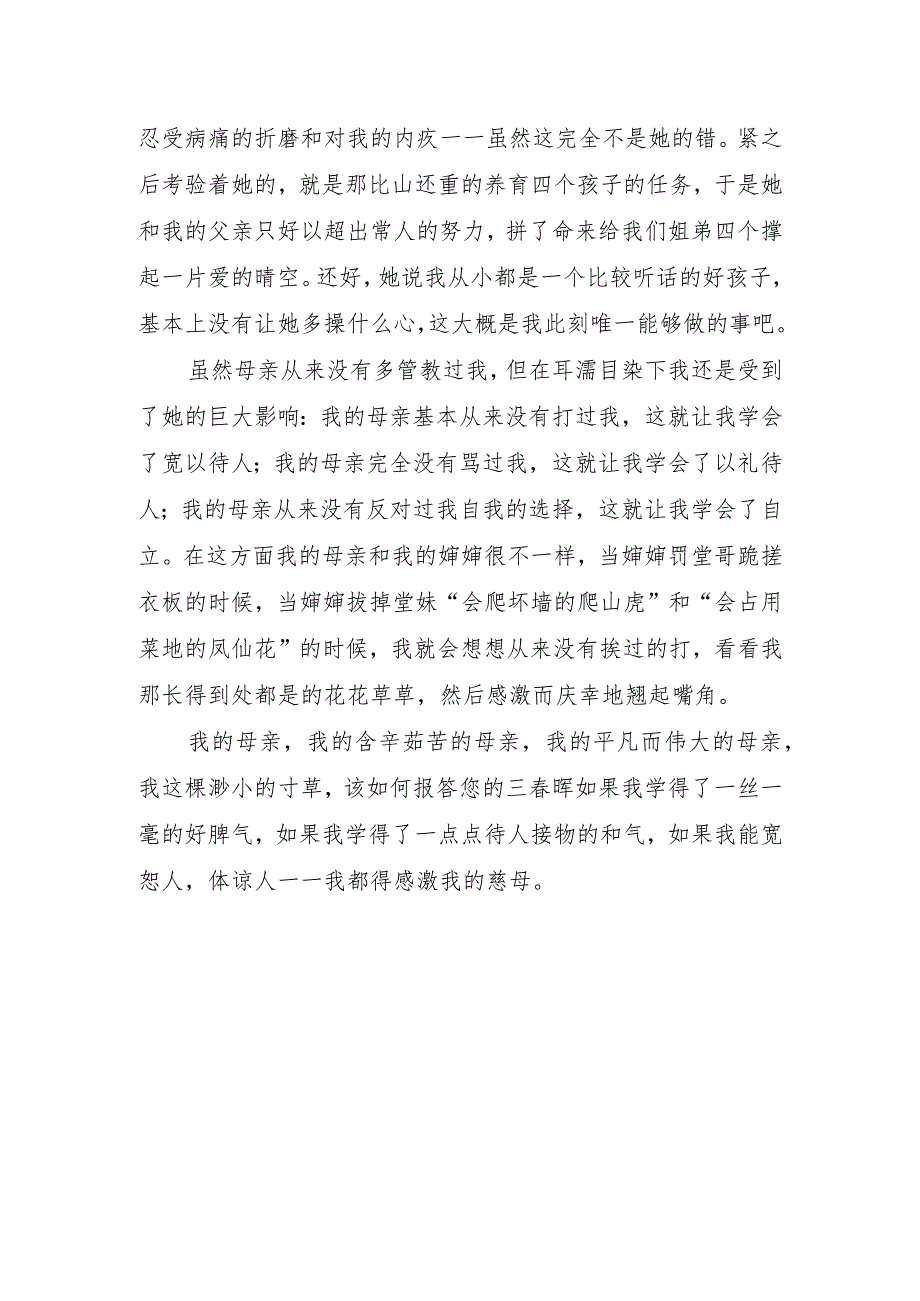 忍受病痛的折磨和对我的内疚一一虽然这完全不是她的错。紧之
后考验着她的，就是那比山还重的养育四个孩子的任务，于是她
和我的父亲只好以超出常人的努力，拼了命来给我们姐弟四个撑
起一片爱的晴空。还好，她说我从小都是一个比较听话的好孩子，
基本上没有让她多操什么心，这大概是我此刻唯一能够做的事吧。
虽然母亲从来没有多管教过我，但在耳濡目染下我还是受到
了她的巨大影响：我的母亲基本从来没有打过我，这就让我学会
了宽以待人；我的母亲完全没有骂过我，这就让我学会了以礼待
人；我的母亲从来没有反对过我自我的选择，这就让我学会了自
立。在这方面我的母亲和我的婶婶很不一样，当婶婶罚堂哥跪搓
衣板的时候，当婶婶拔掉堂妹“会爬坏墙的爬山虎”和“会占用
菜地的凤仙花”的时候，我就会想想从来没有挨过的打，看看我
那长得到处都是的花花草草，然后感激而庆幸地翘起嘴角。
我的母亲，我的含辛茹苦的母亲，我的平凡而伟大的母亲，
我这棵渺小的寸草，该如何报答您的三春晖如果我学得了一丝一
毫的好脾气，如果我学得了一点点待人接物的和气，如果我能宽
恕人，体谅人一一我都得感激我的慈母。